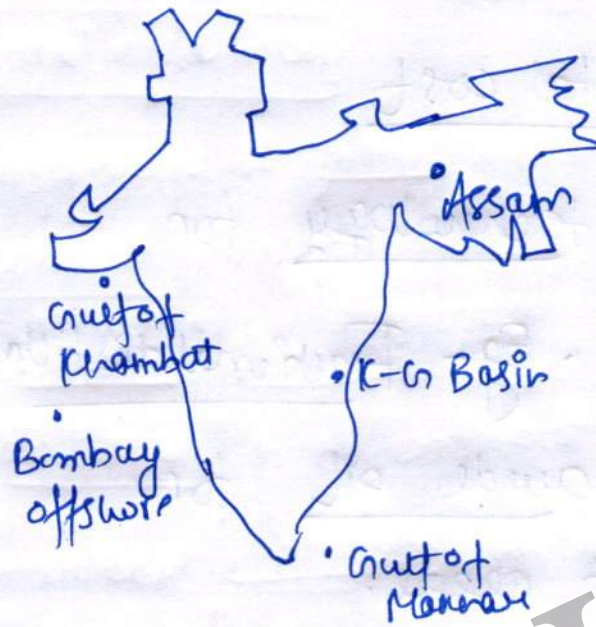 Assam
Gulf of
Khambat
K-G Basin
Bombay
offshore
Gulf of
Mannar